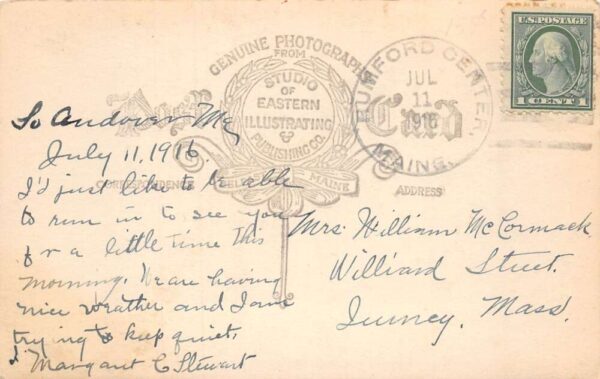 GENUINE PHOTOGRAPH
FROM
STUDIO
OF
EASTERN
ILLUSTRATING
&
PUBLISHING CO.
BELFAST, MAINE
Post Card
CORRESPONDENCE
ADDRESS
RUMFORD CENTER,
JUL
11
1916
MAINE.
U.S. POSTAGE
1 CENT 1
So Andover Me,
July 11, 1916.
I'd just like to be able
to run in to see you
for a little time this
morning. We are having
nice weather and I am
trying to keep quiet,
Margaret C Stewart
Mrs. William McCormack
Williard Street.
Mass.